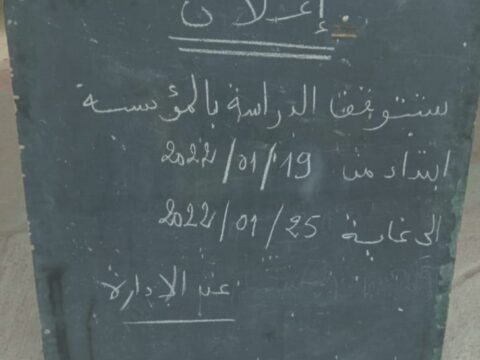 إعلان
ستتوقف الدراسة بالمؤسسة
ابتداء من 2022/01/19
الى غاية 2022/01/25
عن الإدارة